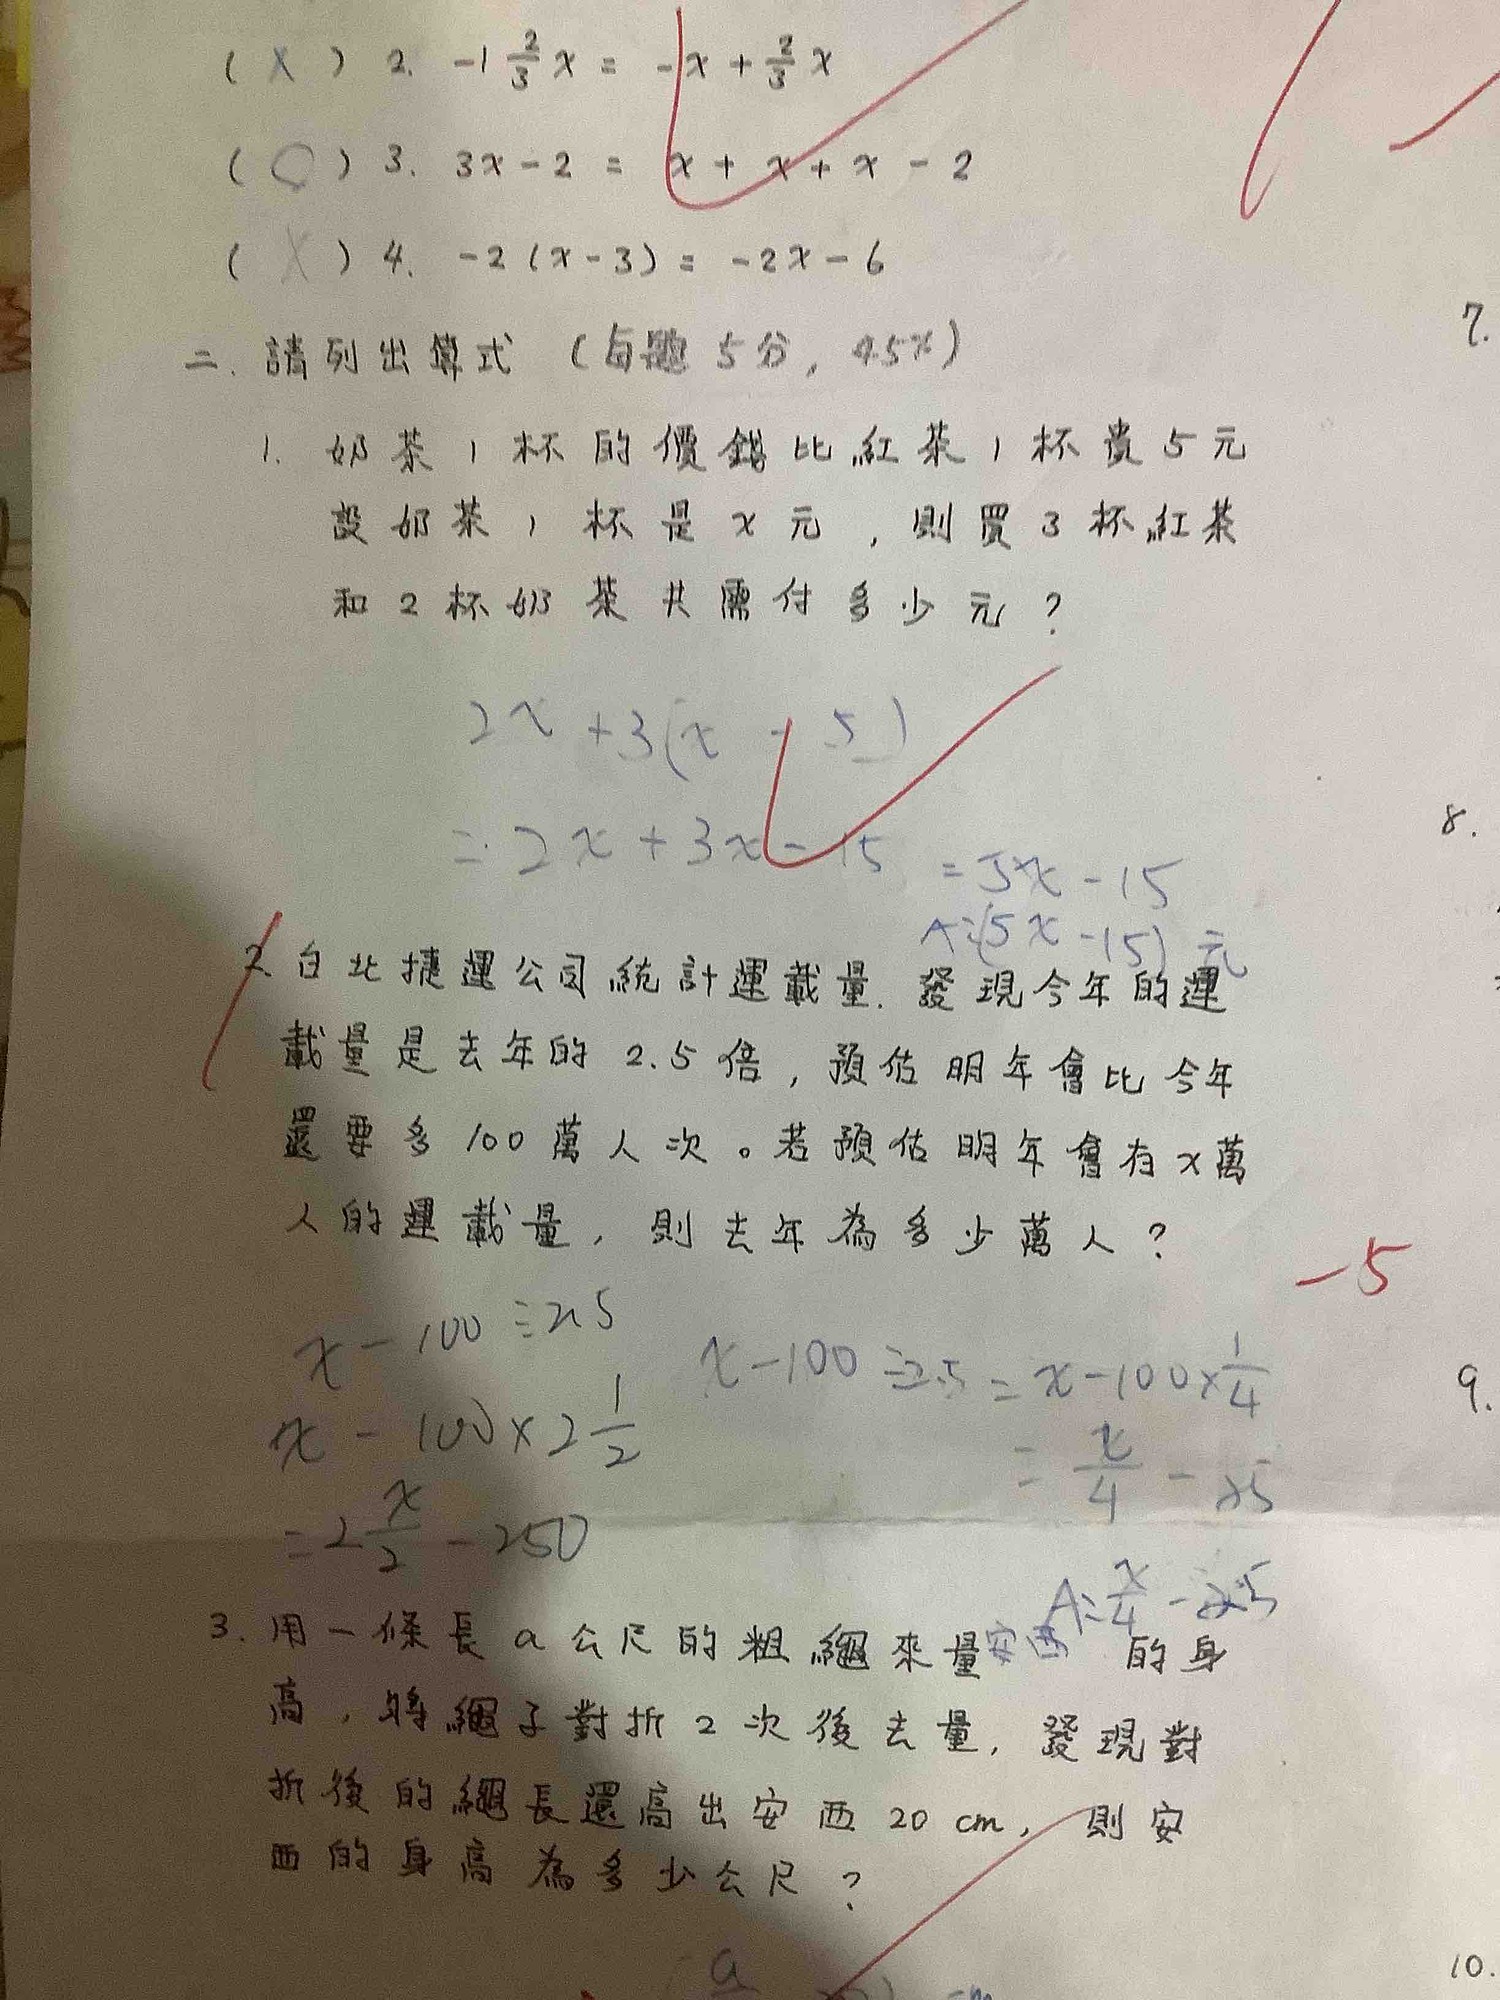 ( X ) 2. -1 2/3 x = -x + 2/3 x
( O ) 3. 3x - 2 = x + x + x - 2
( X ) 4. -2 (x - 3) = -2x - 6
二. 請列出算式 (每題5分, 45%)
1. 奶茶1杯的價錢比紅茶1杯貴5元
設奶茶1杯是x元，則買3杯紅茶
和2杯奶茶共需付多少元？
2x + 3(x - 5)
= 2x + 3x - 15
= 5x - 15
A:(5x - 15)元
2. 台北捷運公司統計運載量. 發現今年的運
載量是去年的2.5倍，預估明年會比今年
還要多100萬人次。若預估明年會有x萬
人的運載量，則去年為多少萬人？
-5
x - 100 ÷ 2.5
x - 100 × 2 1/2
= 2 x/2 - 250
x - 100 ÷ 2.5 = x - 100 × 1/4
= x/4 - 25
A: x/4 - 25
3. 用一條長a公尺的粗繩來量安西的身
高，將繩子對折2次後去量，發現對
折後的繩長還高出安西20cm，則安
西的身高為多少公尺？
a
7.
8.
9.
10.